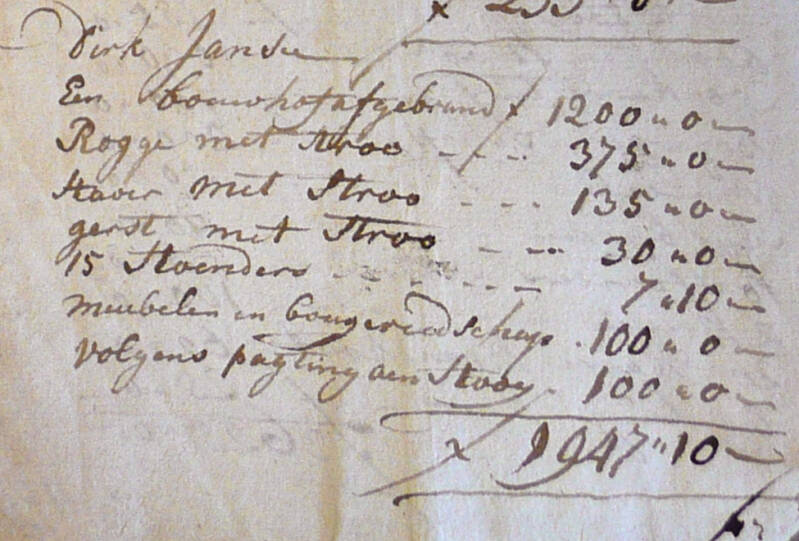 Dirk Janse
Een bouwhof afgebrand x 1200 " 0 —
Rogge met stroo - - - 375 " 0 —
Haver met Stroo - - - 135 " 0 —
gerst met Stroo - - - 30 " 0 —
15 Hoenders - - - - - 7 " 10 —
meubelen en bougereedschap . 100 " 0 —
volgens pagting aen Hooy - 100 " 0 —
x 1947 " 10 —